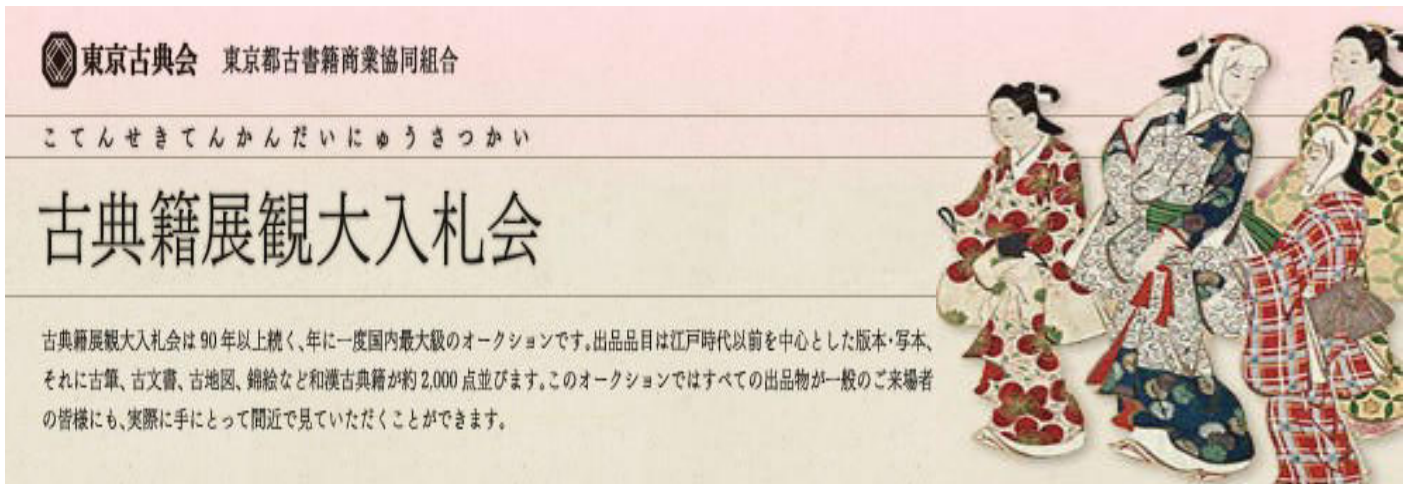 東京古典会 東京都古書籍商業協同組合
こてんせきてんかんだいにゅうさつかい
古典籍展観大入札会
古典籍展観大入札会は90年以上続く、年に一度国内最大級のオークションです。出品品目は江戸時代以前を中心とした版本・写本、
それに古筆、古文書、古地図、錦絵など和漢古典籍が約2,000点並びます。このオークションではすべての出品物が一般のご来場者
の皆様にも、実際に手にとって間近で見ていただくことができます。